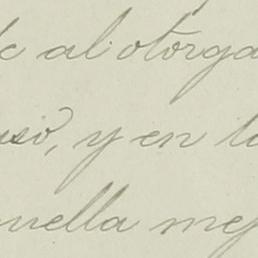 al otorga
uso, y en la
uella mej